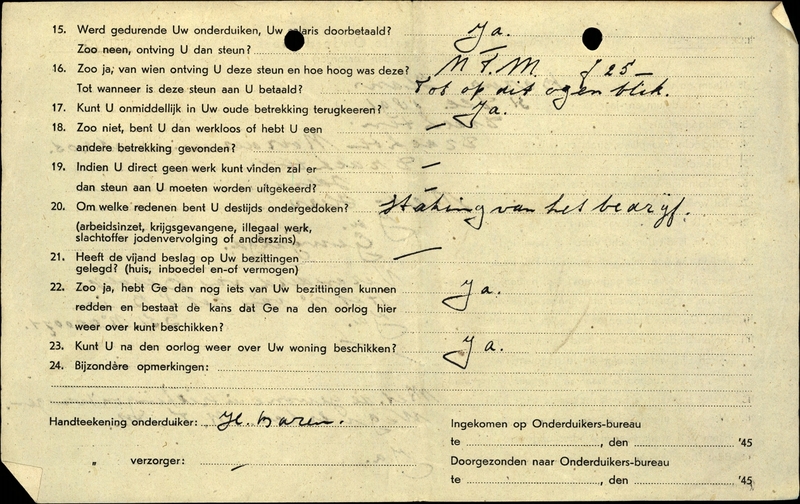 15. Werd gedurende Uw onderduiken, Uw salaris doorbetaald? Ja.
Zoo neen, ontving U dan steun?
16. Zoo ja, van wien ontving U deze steun en hoe hoog was deze? N.T.M. ƒ 25 —
Tot wanneer is deze steun aan U betaald? Tot op dit ogenblik.
17. Kunt U onmiddellijk in Uw oude betrekking terugkeeren? Ja.
18. Zoo niet, bent U dan werkloos of hebt U een —
andere betrekking gevonden?
19. Indien U direct geen werk kunt vinden zal er —
dan steun aan U moeten worden uitgekeerd? —
20. Om welke redenen bent U destijds ondergedoken? Staking van het bedrijf.
(arbeidsinzet, krijgsgevangene, illegaal werk,
slachtoffer jodenvervolging of anderszins)
21. Heeft de vijand beslag op Uw bezittingen —
gelegd? (huis, inboedel en-of vermogen)
22. Zoo ja, hebt Ge dan nog iets van Uw bezittingen kunnen Ja.
redden en bestaat de kans dat Ge na den oorlog hier
weer over kunt beschikken?
23. Kunt U na den oorlog weer over Uw woning beschikken? Ja.
24. Bijzondere opmerkingen:
Handteekening onderduiker: H. Baren.
verzorger: —
Ingekomen op Onderduikers-bureau
te , den '45
Doorgezonden naar Onderduikers-bureau
te , den '45